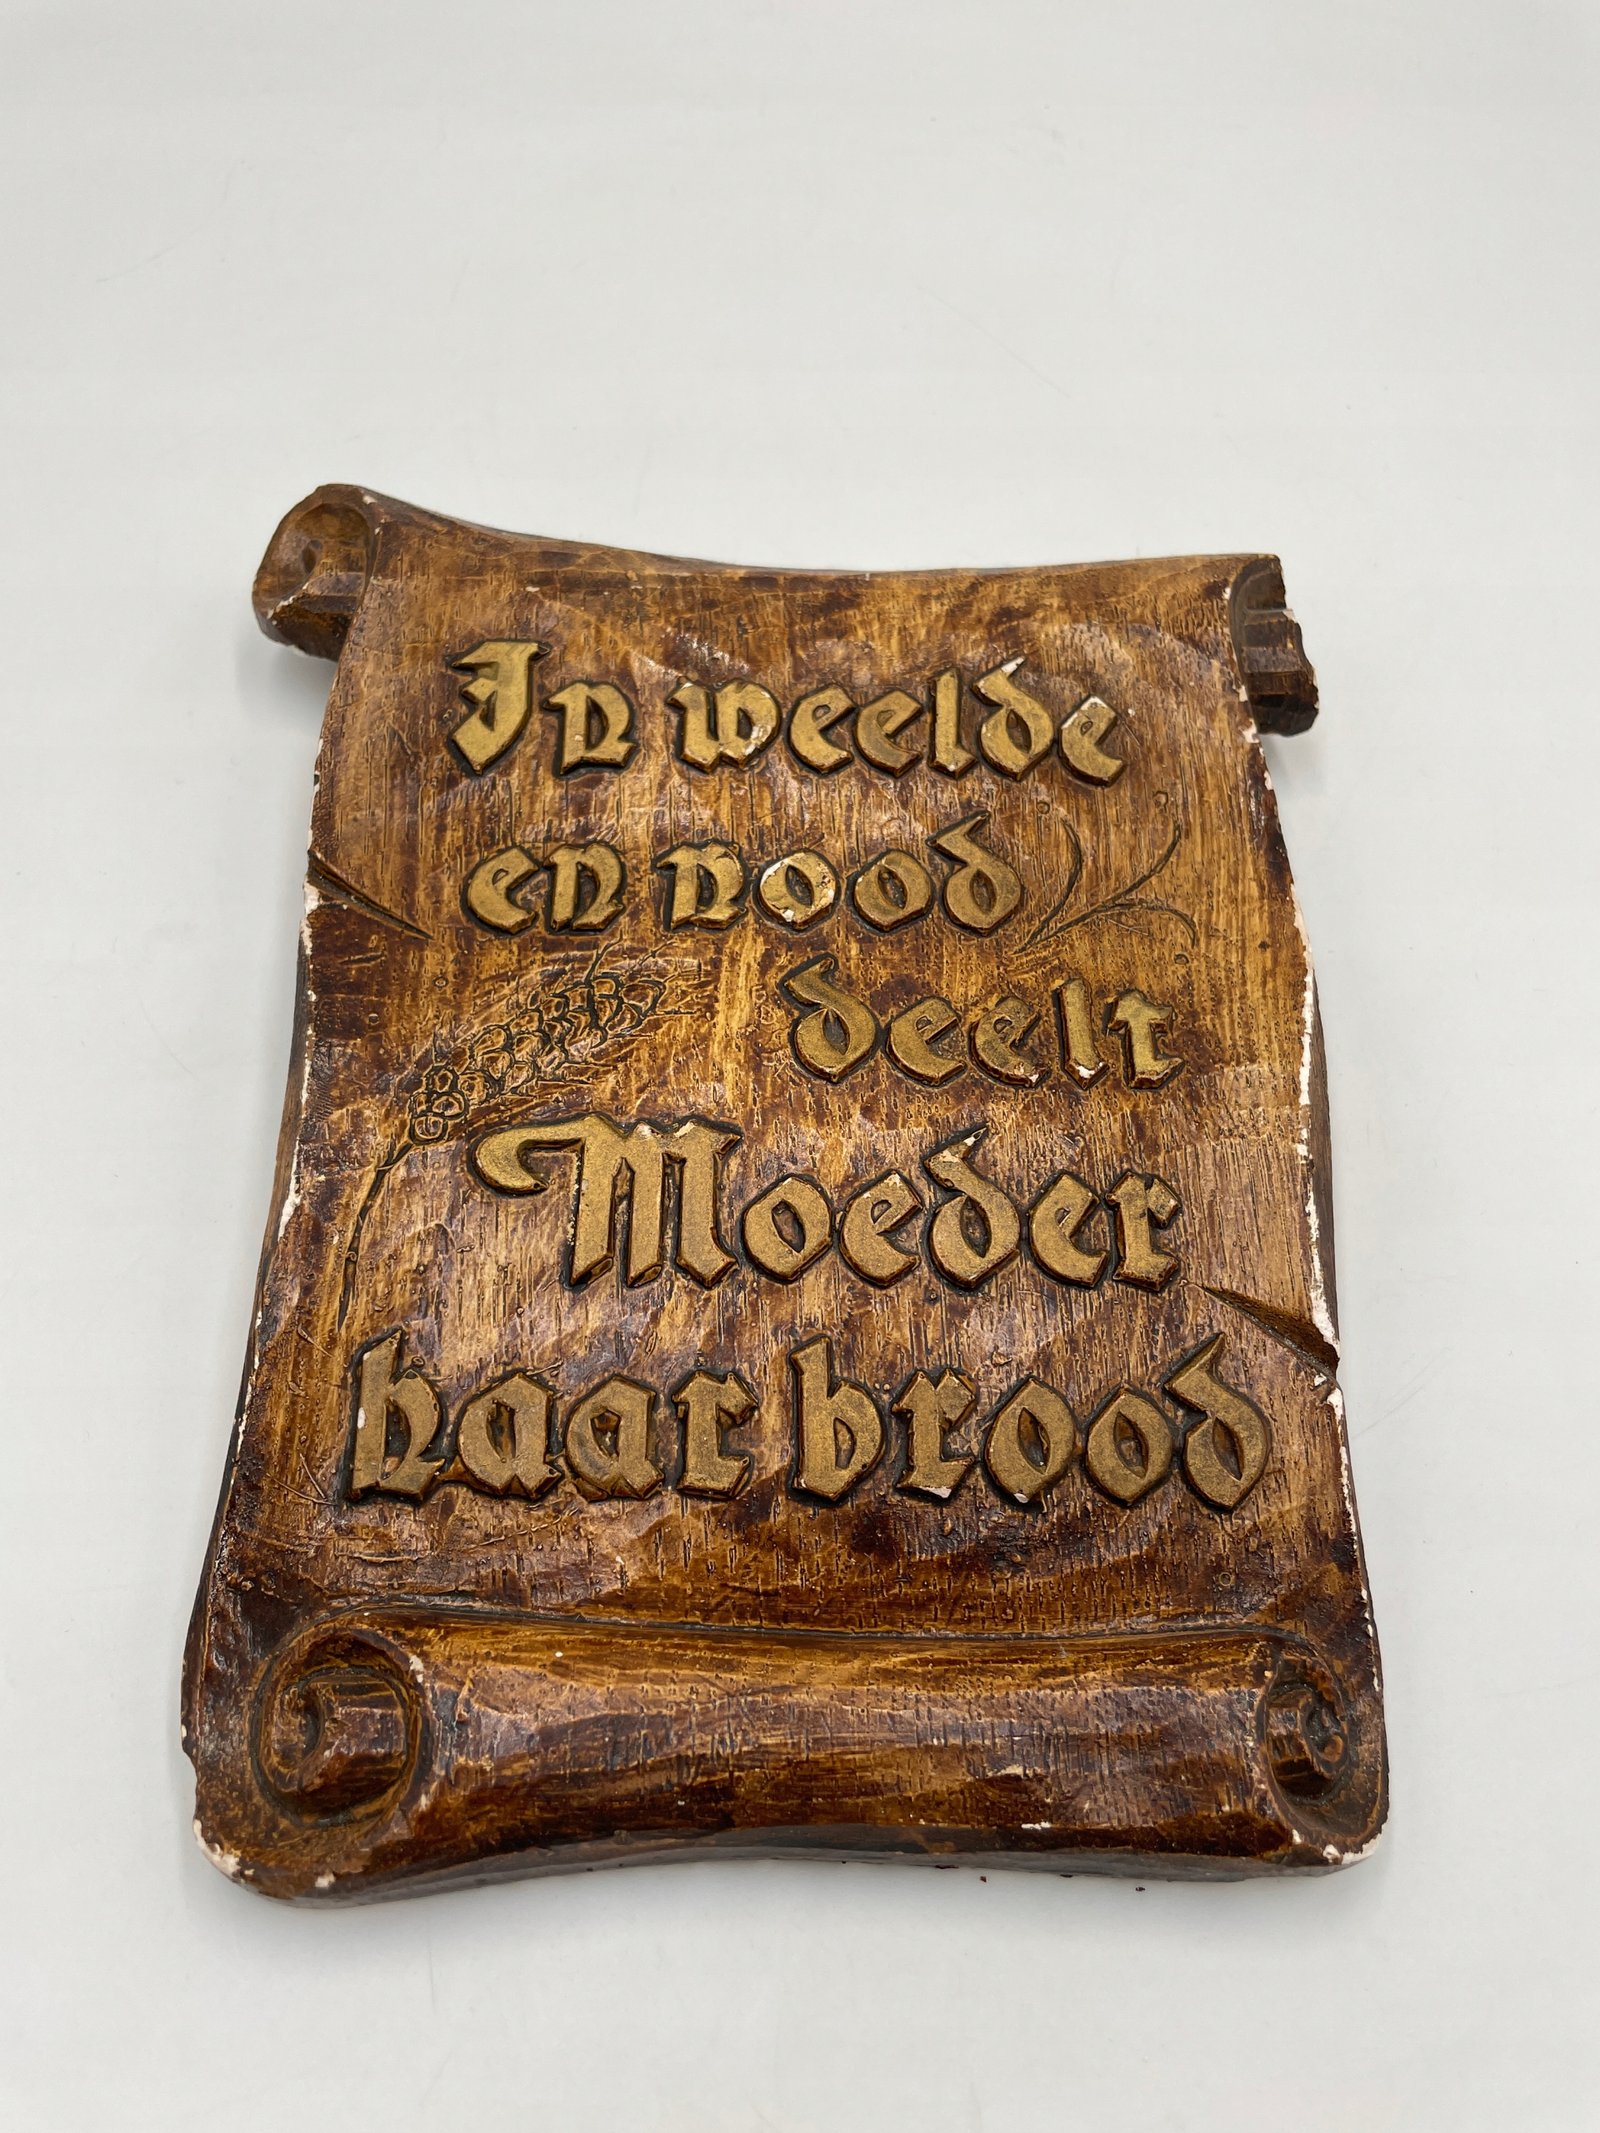 In weelde
en nood
deelt
Moeder
haar brood